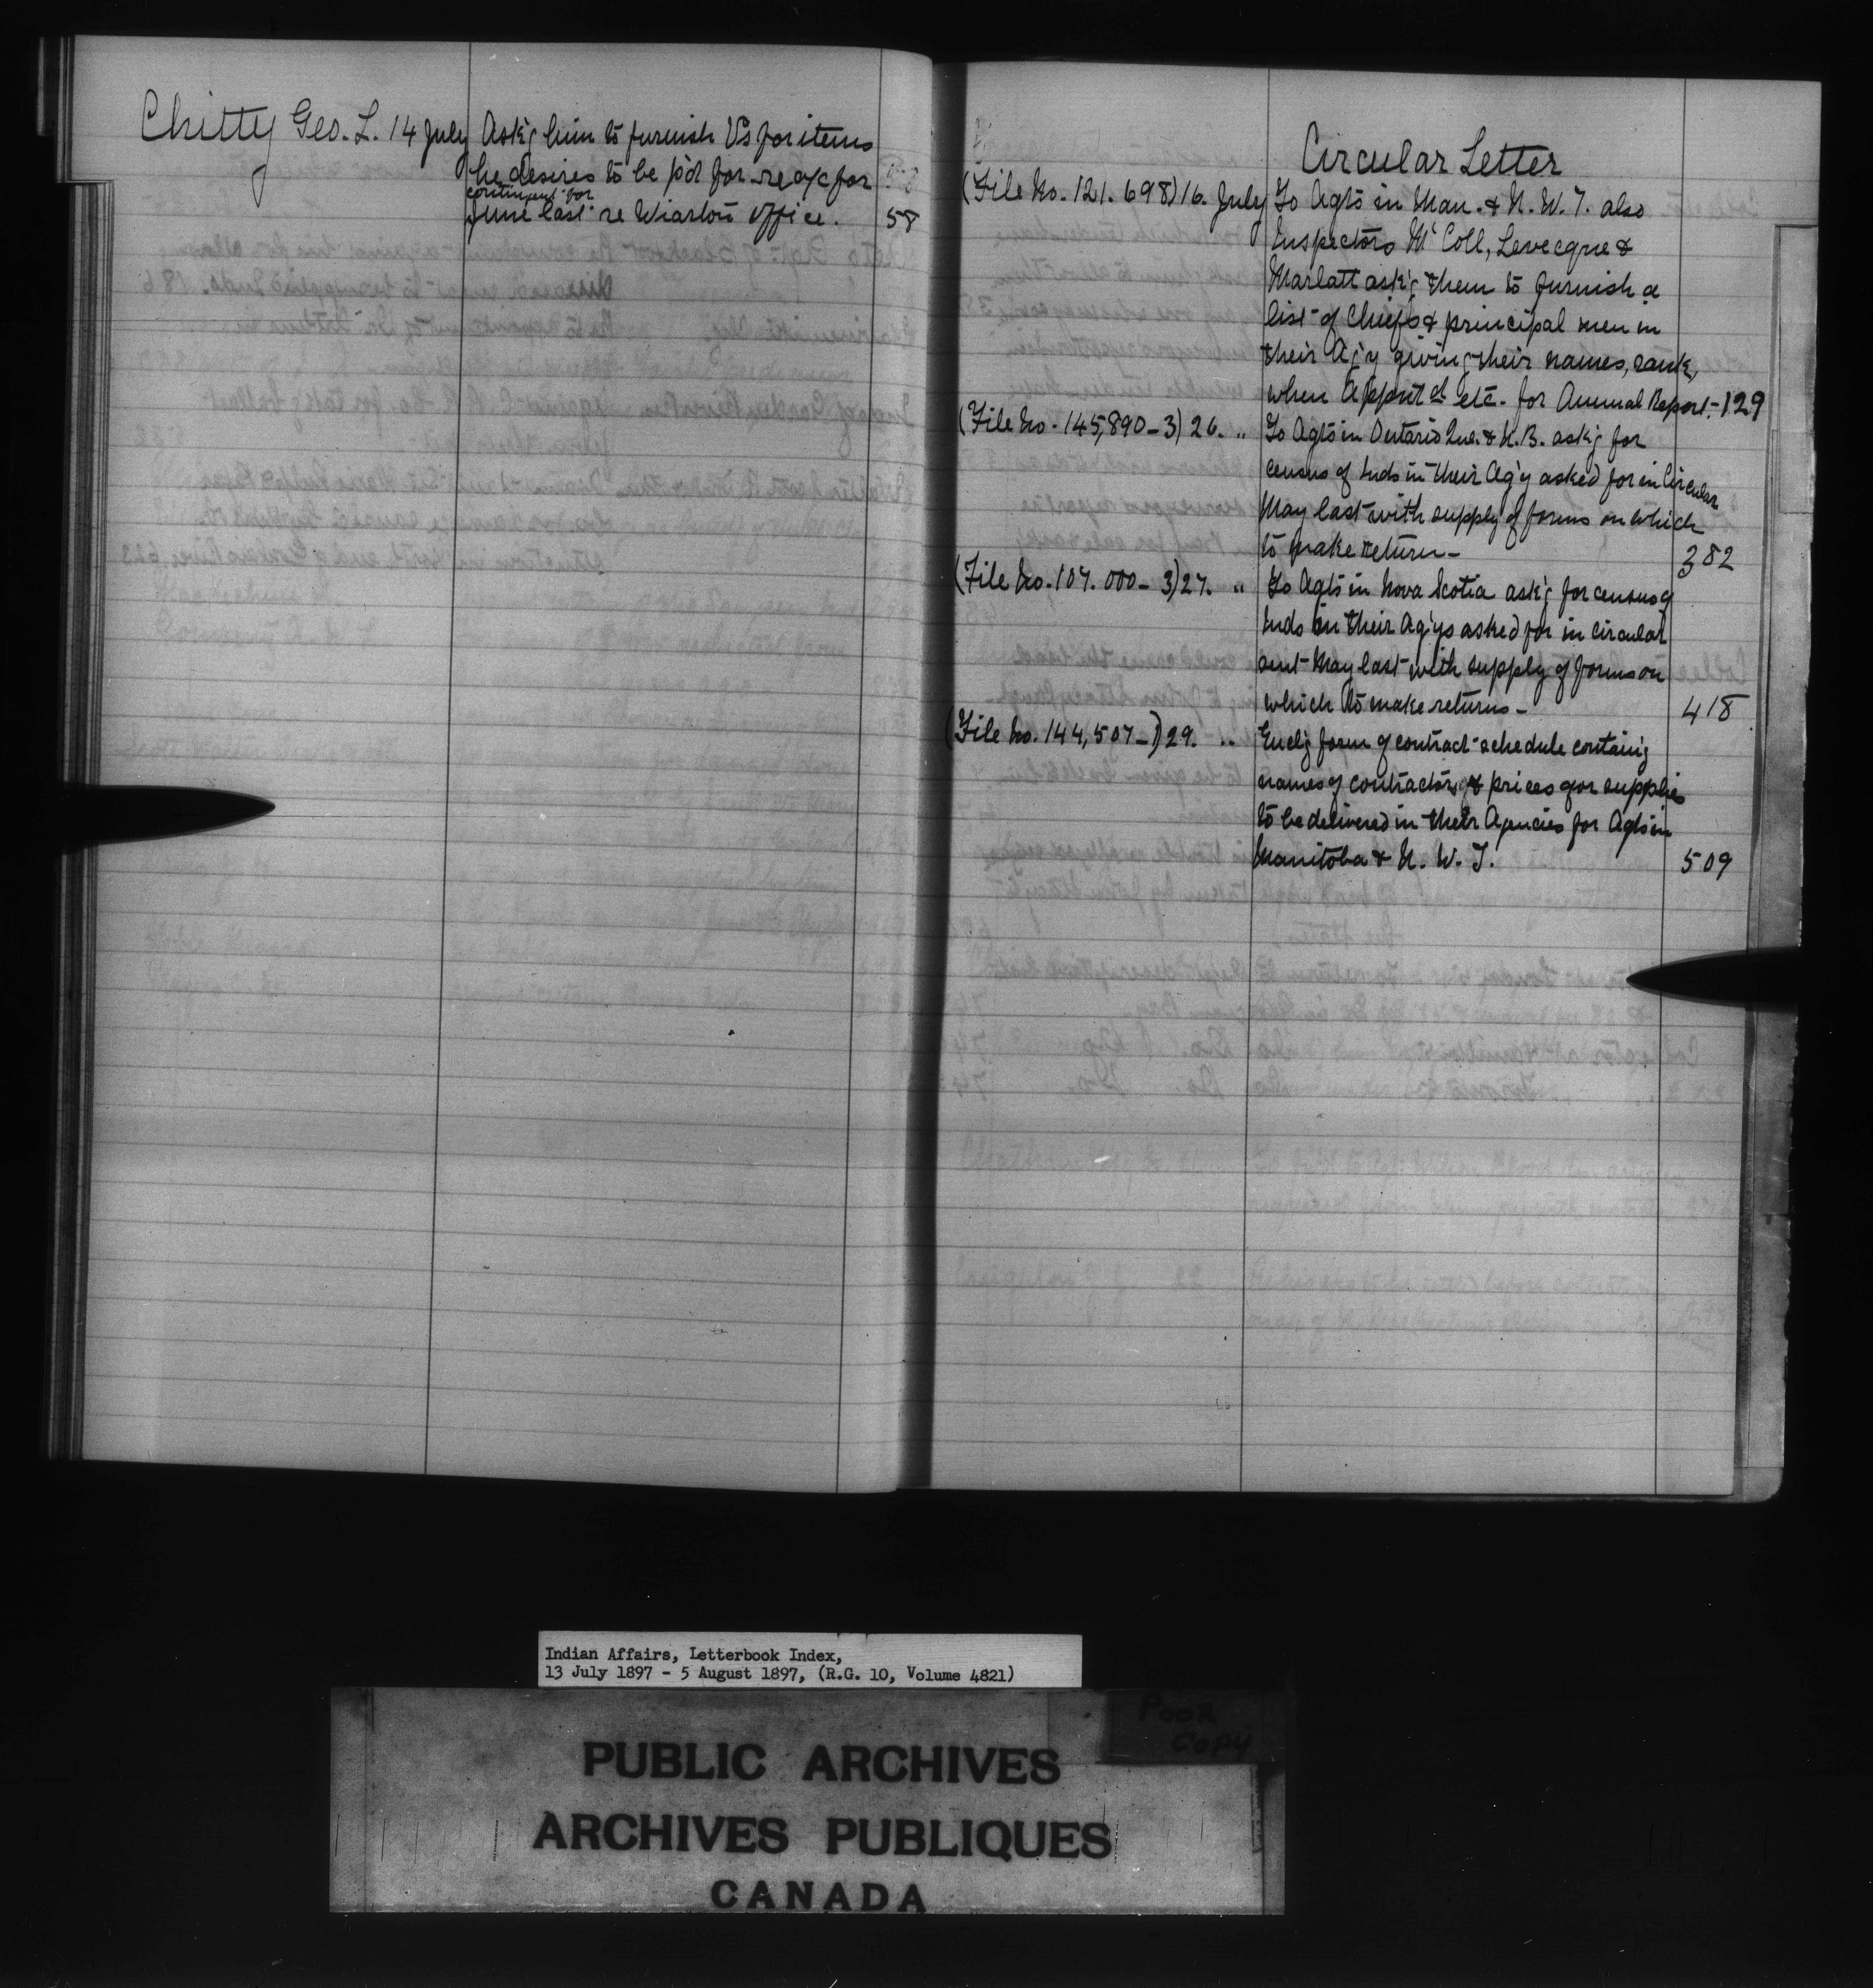 Chitty Geo. L. 14 July Ask'g him to furnish Vs for items
he desires to be p'd for re a/c for
contingent for
June last re Wiarton Office. 58
Circular Letter
(File No. 121.698) 16. July To Agts in Man. & N. W. T. also
Inspectors McColl, Levecque &
Marlatt ask'g them to furnish a
list of Chiefs & principal men in
their Ag'y giving their names, rank,
when Appnt'd etc. for Annual Report.- 129
(File No. 145,890-3) 26. " To Agts in Ontario Que. & N.B. ask'g for
census of Inds in their Ag'y asked for in Circular
May last with supply of forms on which
to make return- 382
(File No. 107.000-3) 27. " To Agts in Nova Scotia ask'g for census of
Inds in their Ag'ys asked for in circular
sent May last with supply of forms on
which to make returns- 418
(File No. 144,507-1) 29. " Encl'g form of contract schedule contain'g
names of contractors & prices for supplies
to be delivered in their Agencies for Agts in
Manitoba & N. W. T. 509
Indian Affairs, Letterbook Index,
13 July 1897 - 5 August 1897, (R.G. 10, Volume 4821)
POOR
COPY
PUBLIC ARCHIVES
ARCHIVES PUBLIQUES
CANADA